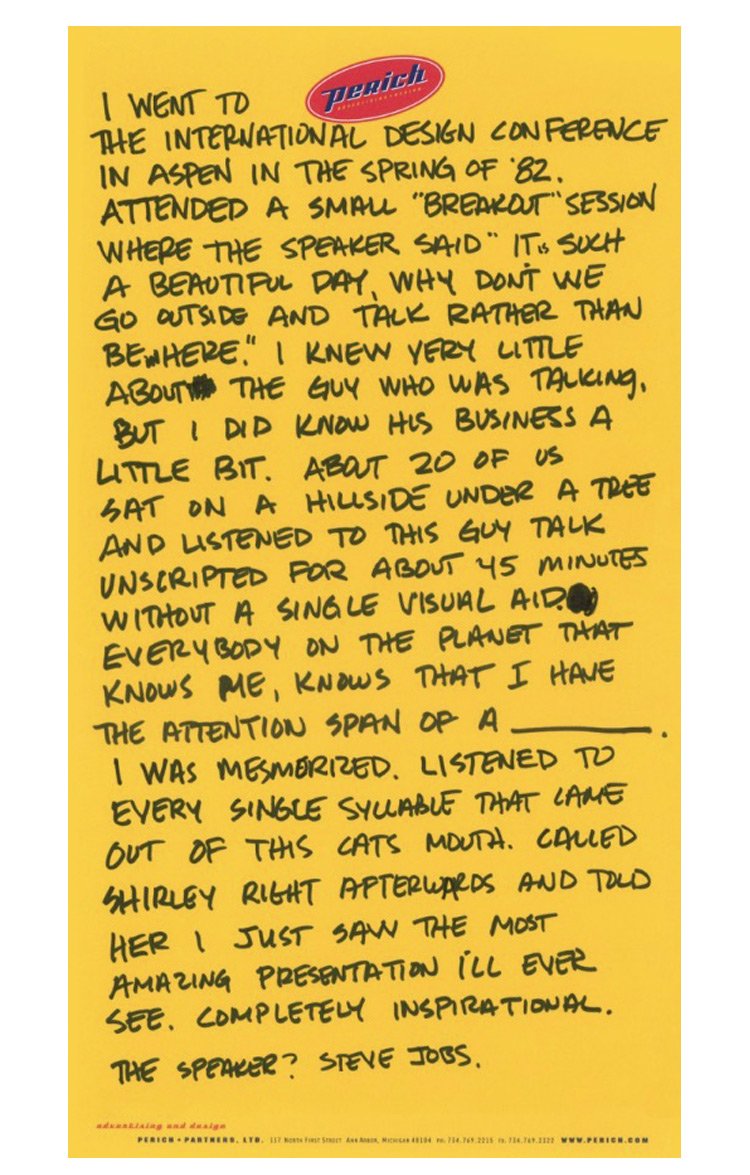 Perich
ADVERTISING + DESIGN
I WENT TO
THE INTERNATIONAL DESIGN CONFERENCE
IN ASPEN IN THE SPRING OF '82.
ATTENDED A SMALL "BREAKOUT" SESSION
WHERE THE SPEAKER SAID "IT IS SUCH
A BEAUTIFUL DAY, WHY DON'T WE
GO OUTSIDE AND TALK RATHER THAN
BE IN HERE." I KNEW VERY LITTLE
ABOUT THE GUY WHO WAS TALKING,
BUT I DID KNOW HIS BUSINESS A
LITTLE BIT. ABOUT 20 OF US
SAT ON A HILLSIDE UNDER A TREE
AND LISTENED TO THIS GUY TALK
UNSCRIPTED FOR ABOUT 45 MINUTES
WITHOUT A SINGLE VISUAL AID.
EVERYBODY ON THE PLANET THAT
KNOWS ME, KNOWS THAT I HAVE
THE ATTENTION SPAN OF A ________.
I WAS MESMERIZED. LISTENED TO
EVERY SINGLE SYLLABLE THAT CAME
OUT OF THIS CATS MOUTH. CALLED
SHIRLEY RIGHT AFTERWARDS AND TOLD
HER I JUST SAW THE MOST
AMAZING PRESENTATION I'LL EVER
SEE. COMPLETELY INSPIRATIONAL.
THE SPEAKER? STEVE JOBS.
advertising and design
PERICH + PARTNERS, LTD. 117 NORTH FIRST STREET ANN ARBOR, MICHIGAN 48104 PH: 734.769.2215 FX: 734.769.2322 WWW.PERICH.COM